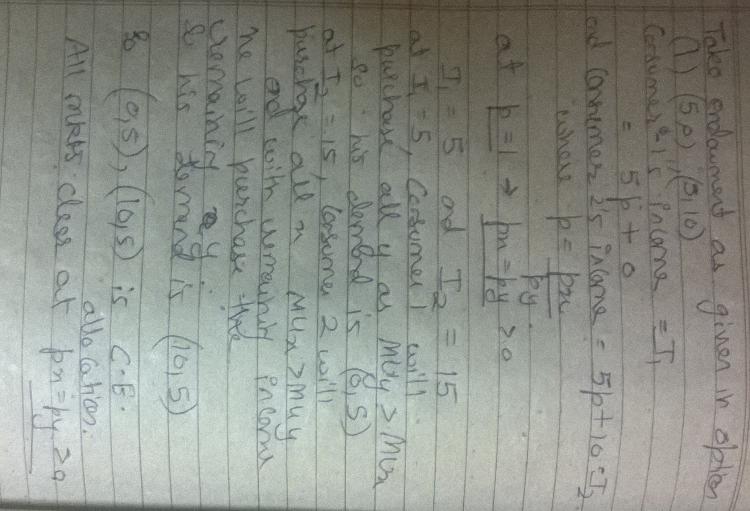 Take endowment as given in option
(1) (5,0), (5,10)
Consumer 1's income = I1
= 5p + 0
ad Consumer 2's income = 5p+10 = I2.
where p = px
py.
at p=1 → px = py > 0
I1 = 5 ad I2 = 15
at I1 = 5, Consumer 1 will
purchase all y as MUy > MUx
so his demand is (0,5)
at I2 = 15, Consumer 2 will
purchase all x MUx > MUy
ad with remaining income
he will purchase the
remaining y.
& his demand is (10,5)
So (0,5), (10,5) is C.E.
allocation.
All mkts. clear at px = py > 0